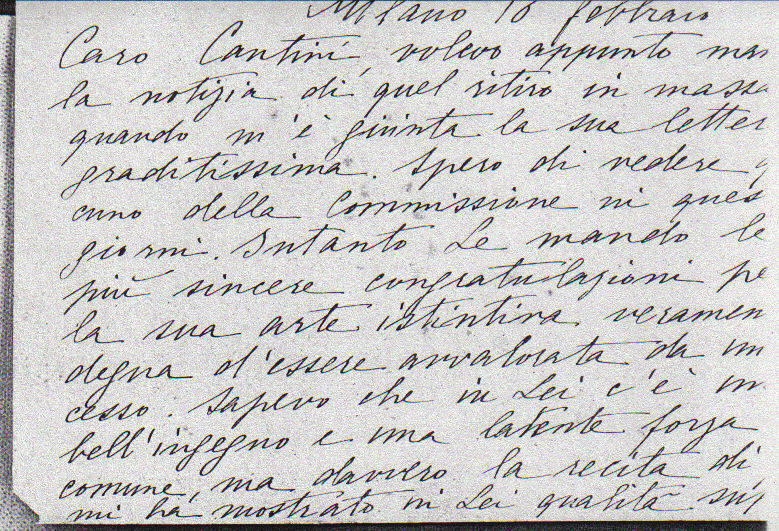 Milano 18 febbraio
Caro Cantini, volevo appunto man
la notizia di quel ritiro in massa
quando m'è giunta la sua letter
graditissima. Spero di vedere q
cuno della Commissione in ques
giorni. Intanto Le mando le
più sincere congratulazioni pe
la sua arte istintiva, veramen
degna d'essere avvalorata da un
cesso. Sapevo che in Lei c'è un
bell'ingegno e una latente forza
comune, ma davvero la recita di
mi ha mostrato in Lei qualità sup